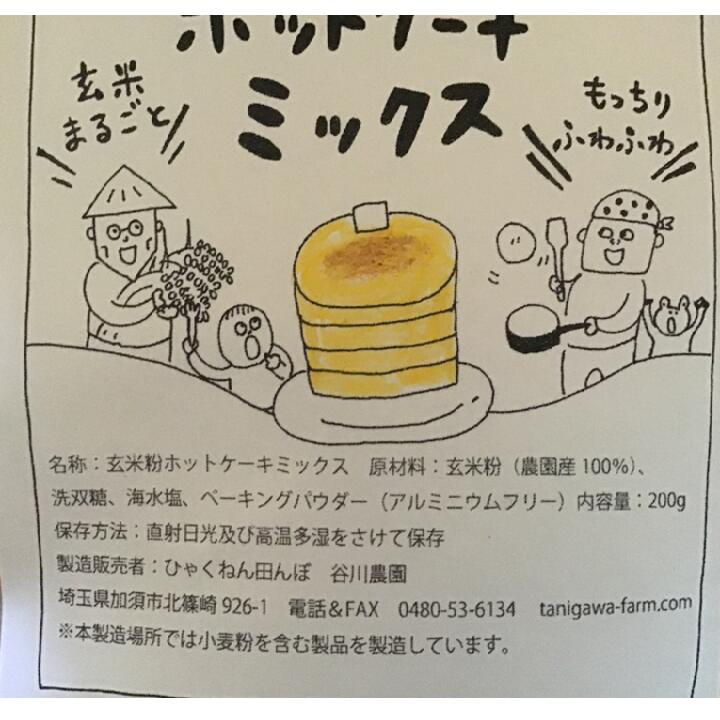 ホットケーキ
ミックス
玄米
まるごと
もっちり
ふわふわ
名称：玄米粉ホットケーキミックス　原材料：玄米粉（農園産100%）、
洗双糖、海水塩、ベーキングパウダー（アルミニウムフリー）内容量：200g
保存方法：直射日光及び高温多湿をさけて保存
製造販売者：ひゃくねん田んぼ　谷川農園
埼玉県加須市北篠崎926-1　電話&FAX　0480-53-6134　tanigawa-farm.com
※本製造場所では小麦粉を含む製品を製造しています。